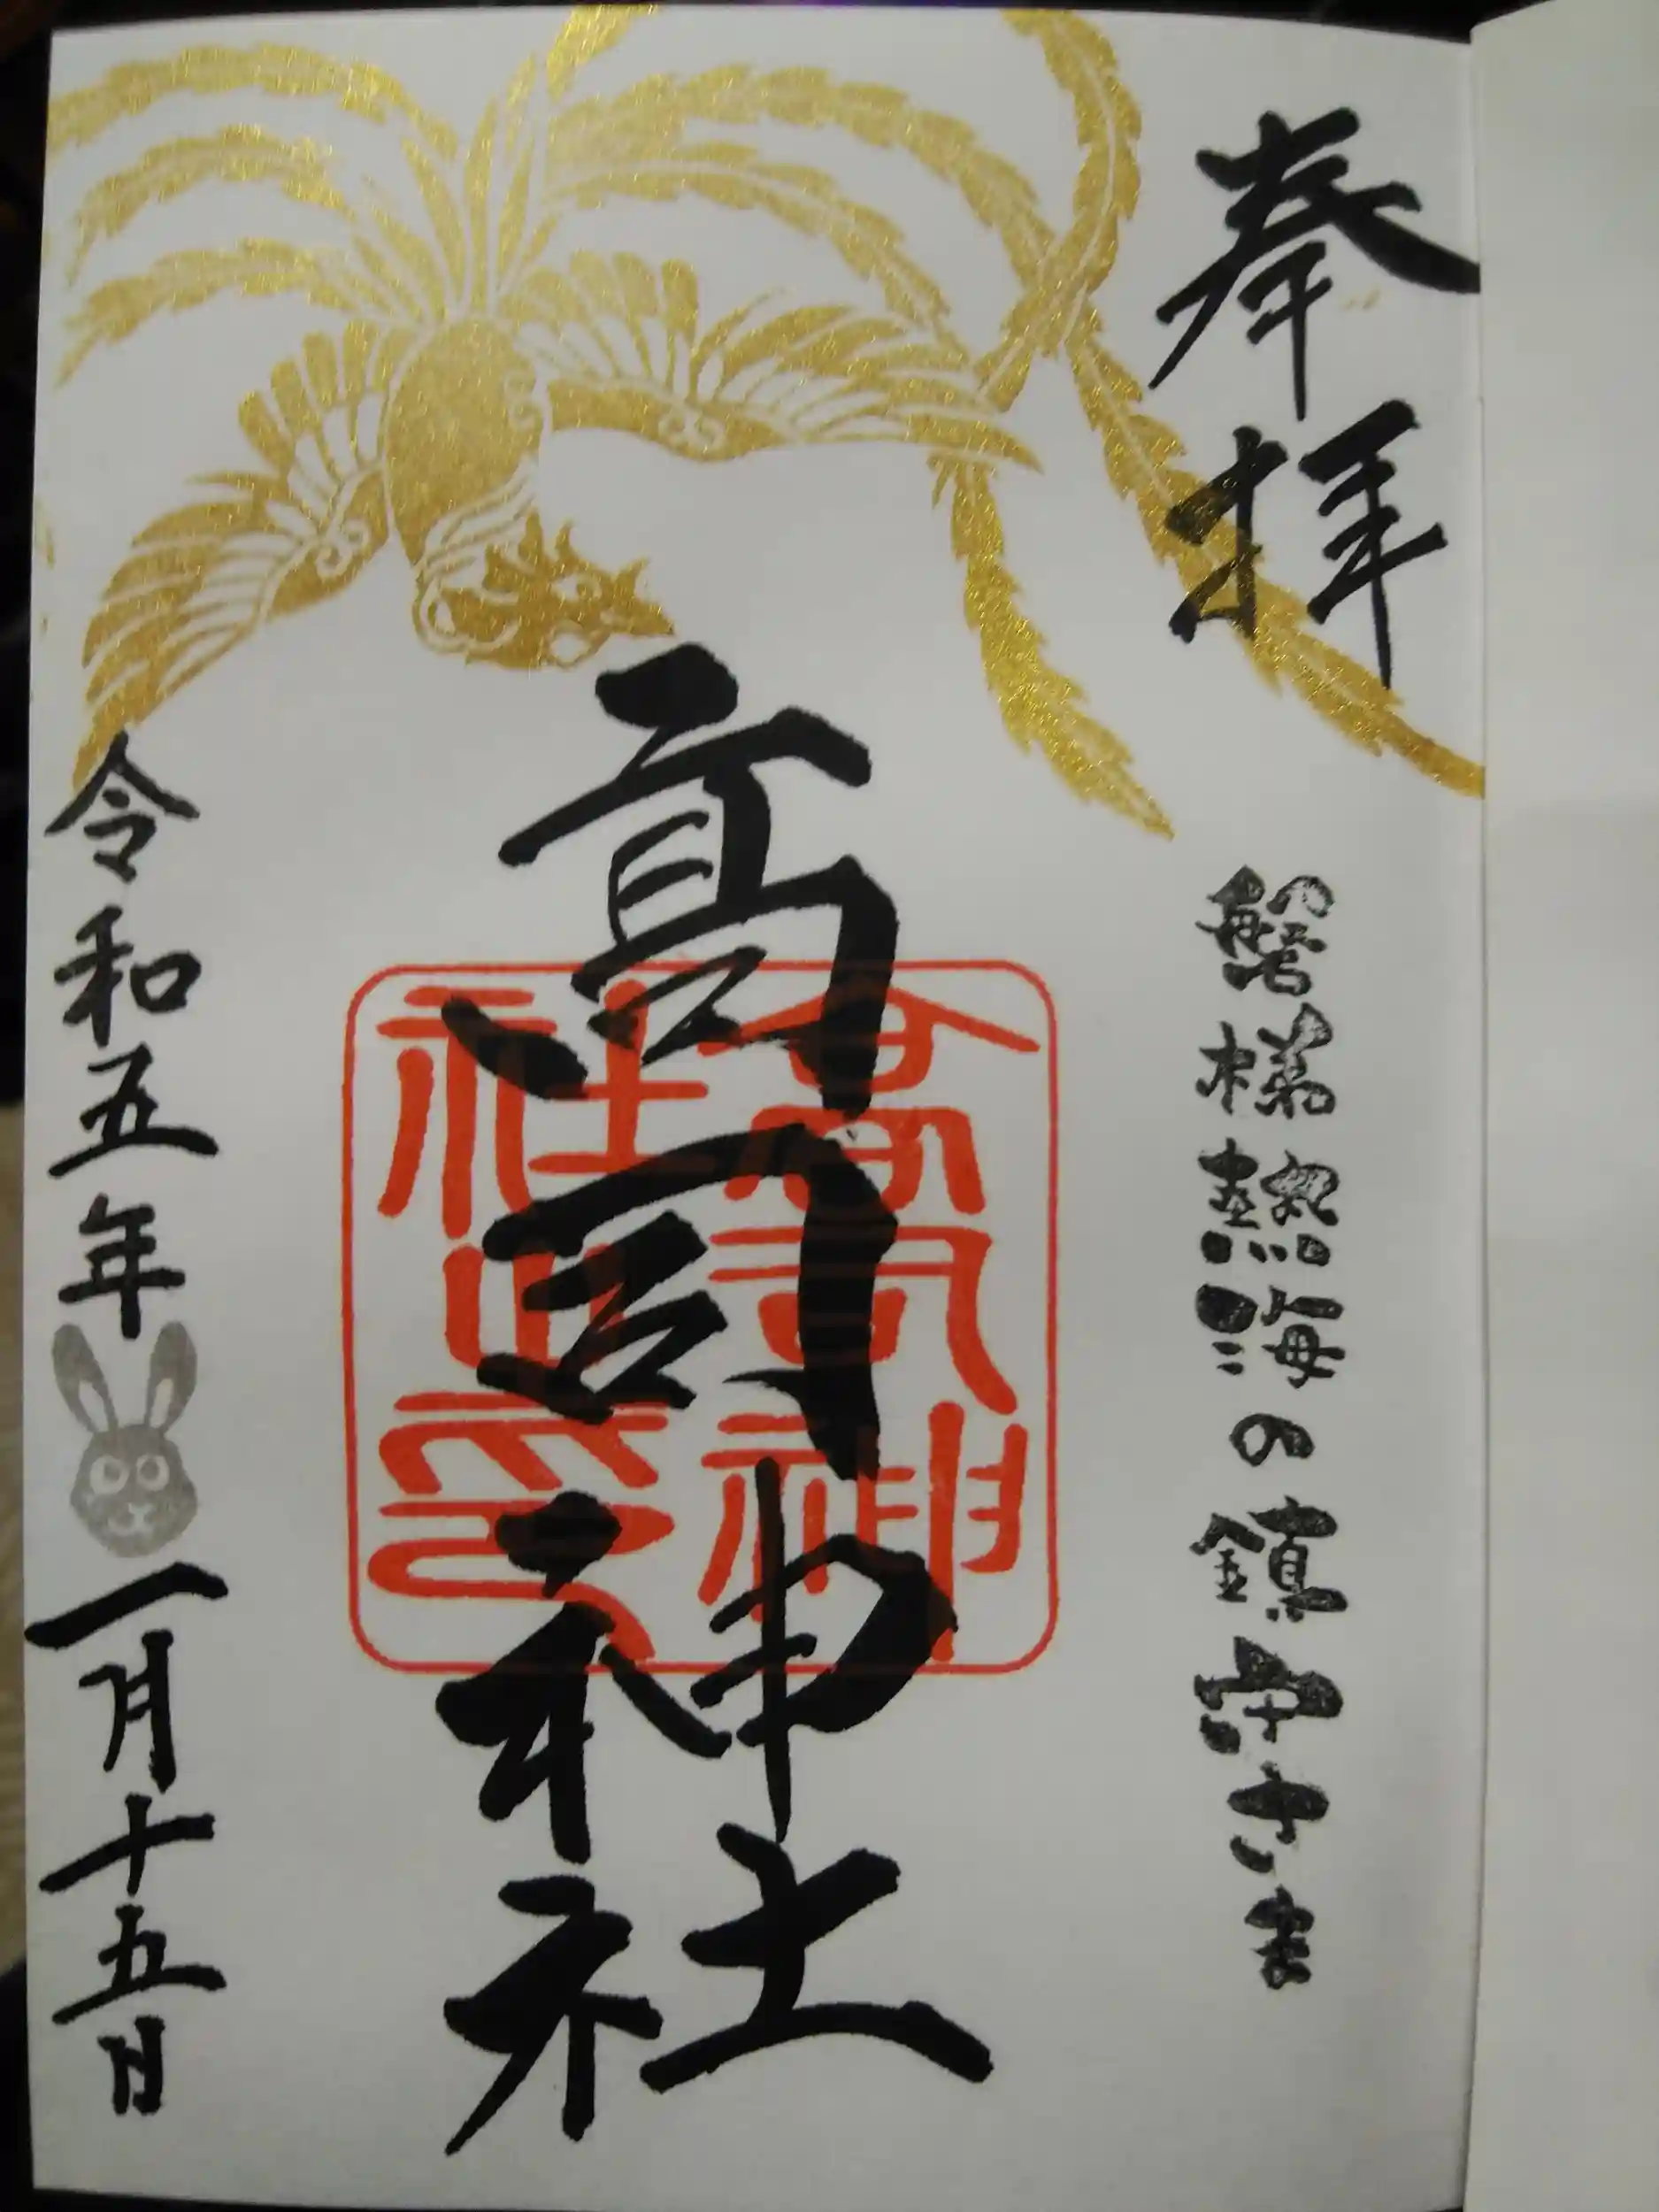 奉拝
磐梯熱海の鎮守さま
高司神社
高司神
社之印
令和五年
一月十五日